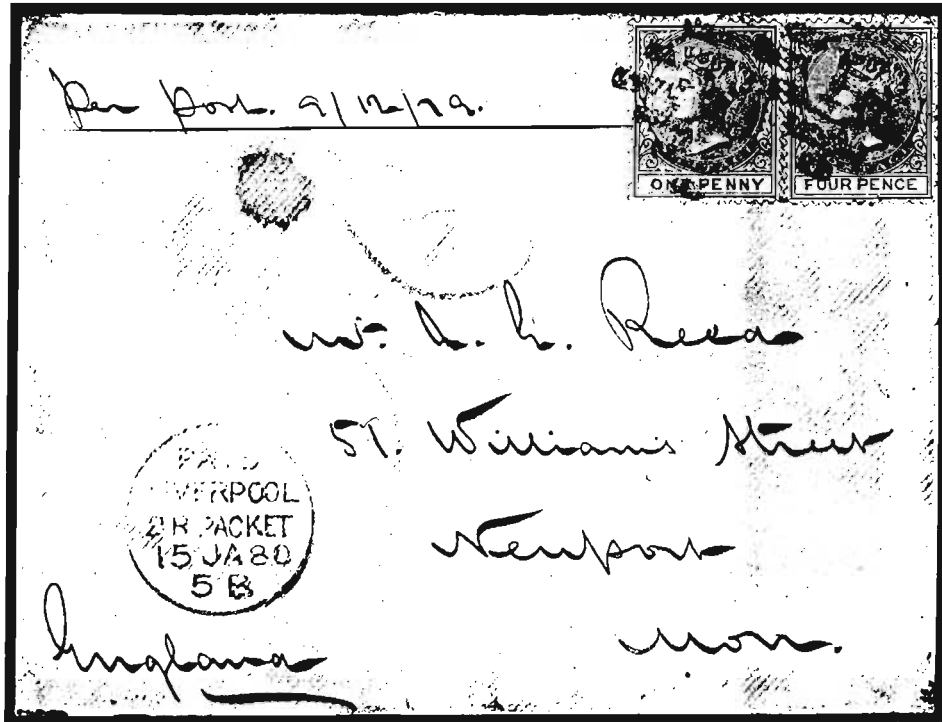 Per post. 9/12/79.
ONE PENNY
FOUR PENCE
Mr. Reed
57. Williams Street
Newport
Mon.
England
PAID
LIVERPOOL
BR PACKET
15 JA 80
5 B